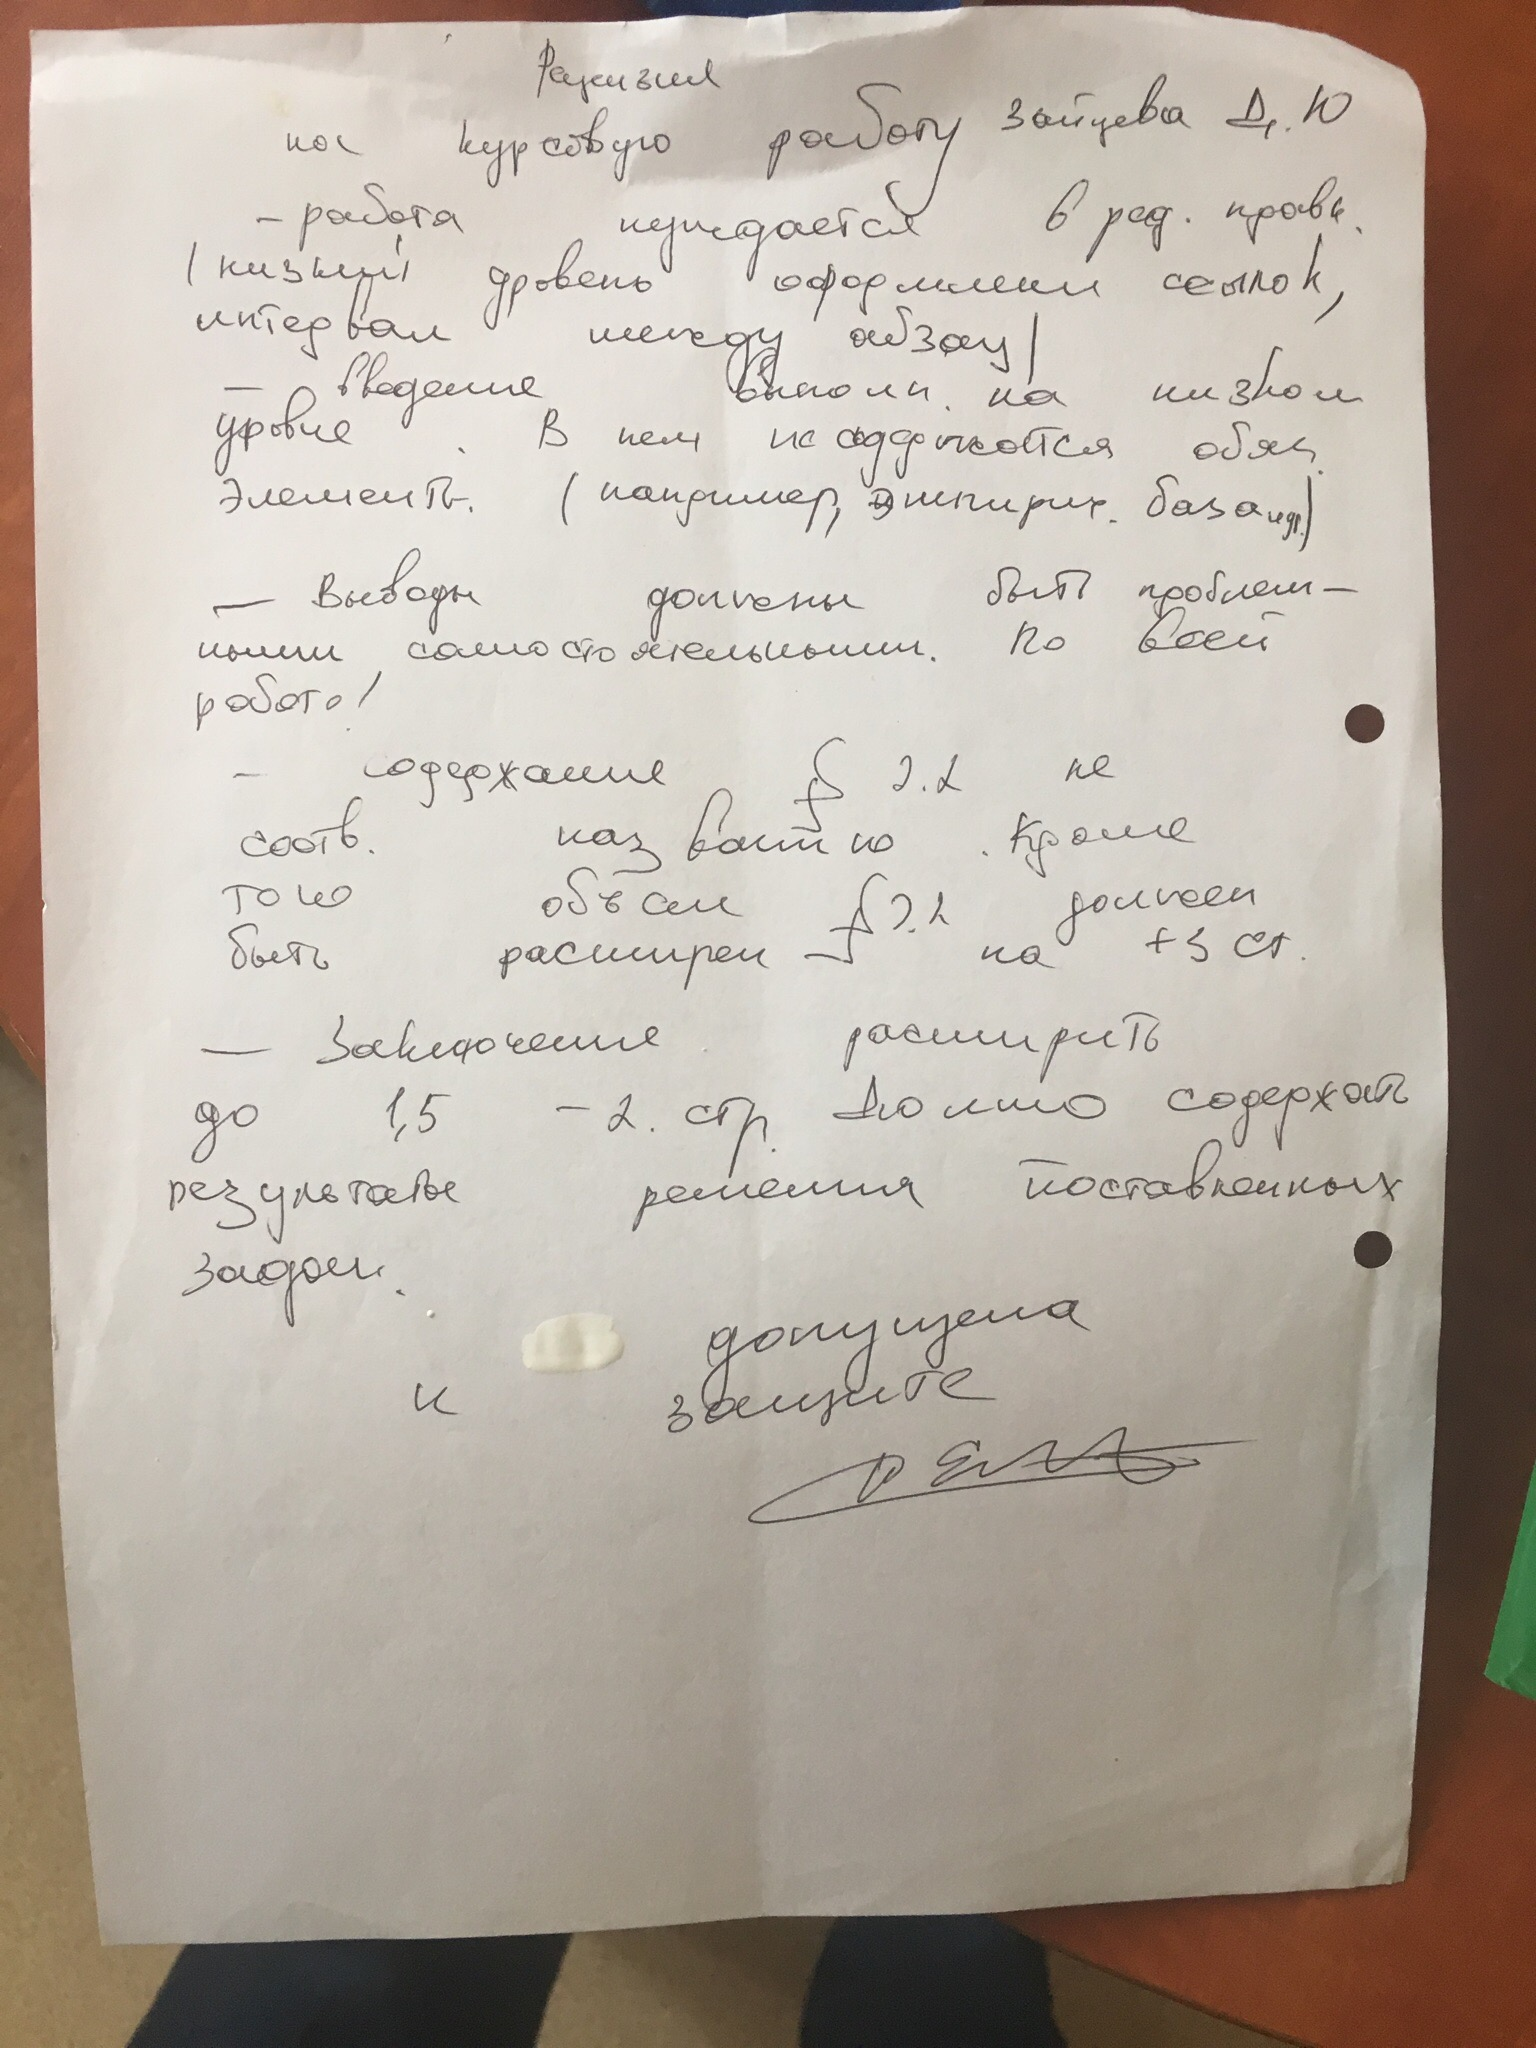 Рецизия
на курсовую работу Зайцева Д.Ю
– работа нуждается в ред. правк.
(низкий уровень оформлени ссылок,
интервал между абзац)
– введение выполн. на низком
уровне. В нем не содержатся обяз.
элементы. (например, эмпирич. база и др.)
– Выводы должны быть проблем-
ными, самостоятельными. По всей
работе!
– содержание § 2.2 не
соотв. названию. Кроме
того объем § 2.2 должен
быть расширен на +3 ст.
– Заключение расширить
до 1,5 – 2. стр. Должно содержать
результаты решения поставленных
задач.
допущена
к защите